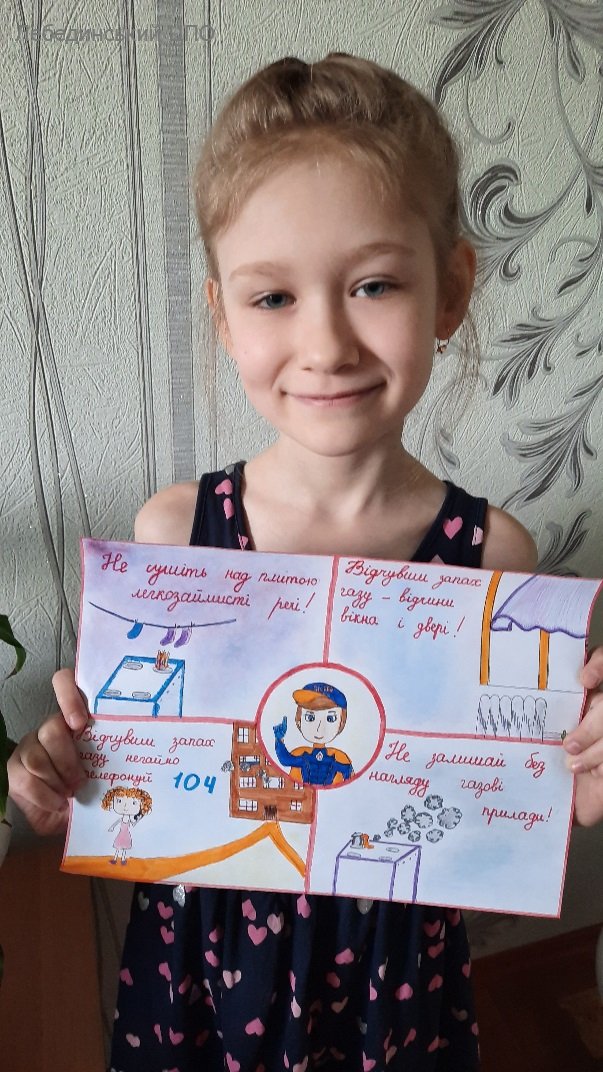 Лебединський ВПО
Не сушіть над плитою
легкозаймисті речі!
Відчувши запах
газу - відчини
вікна і двері!
Відчувши запах
газу негайно
телефонуй 104
Не залишай без
нагляду газові
прилади!